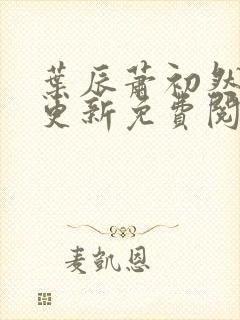 葉辰蕭初然
更新免費閱
麦凱恩